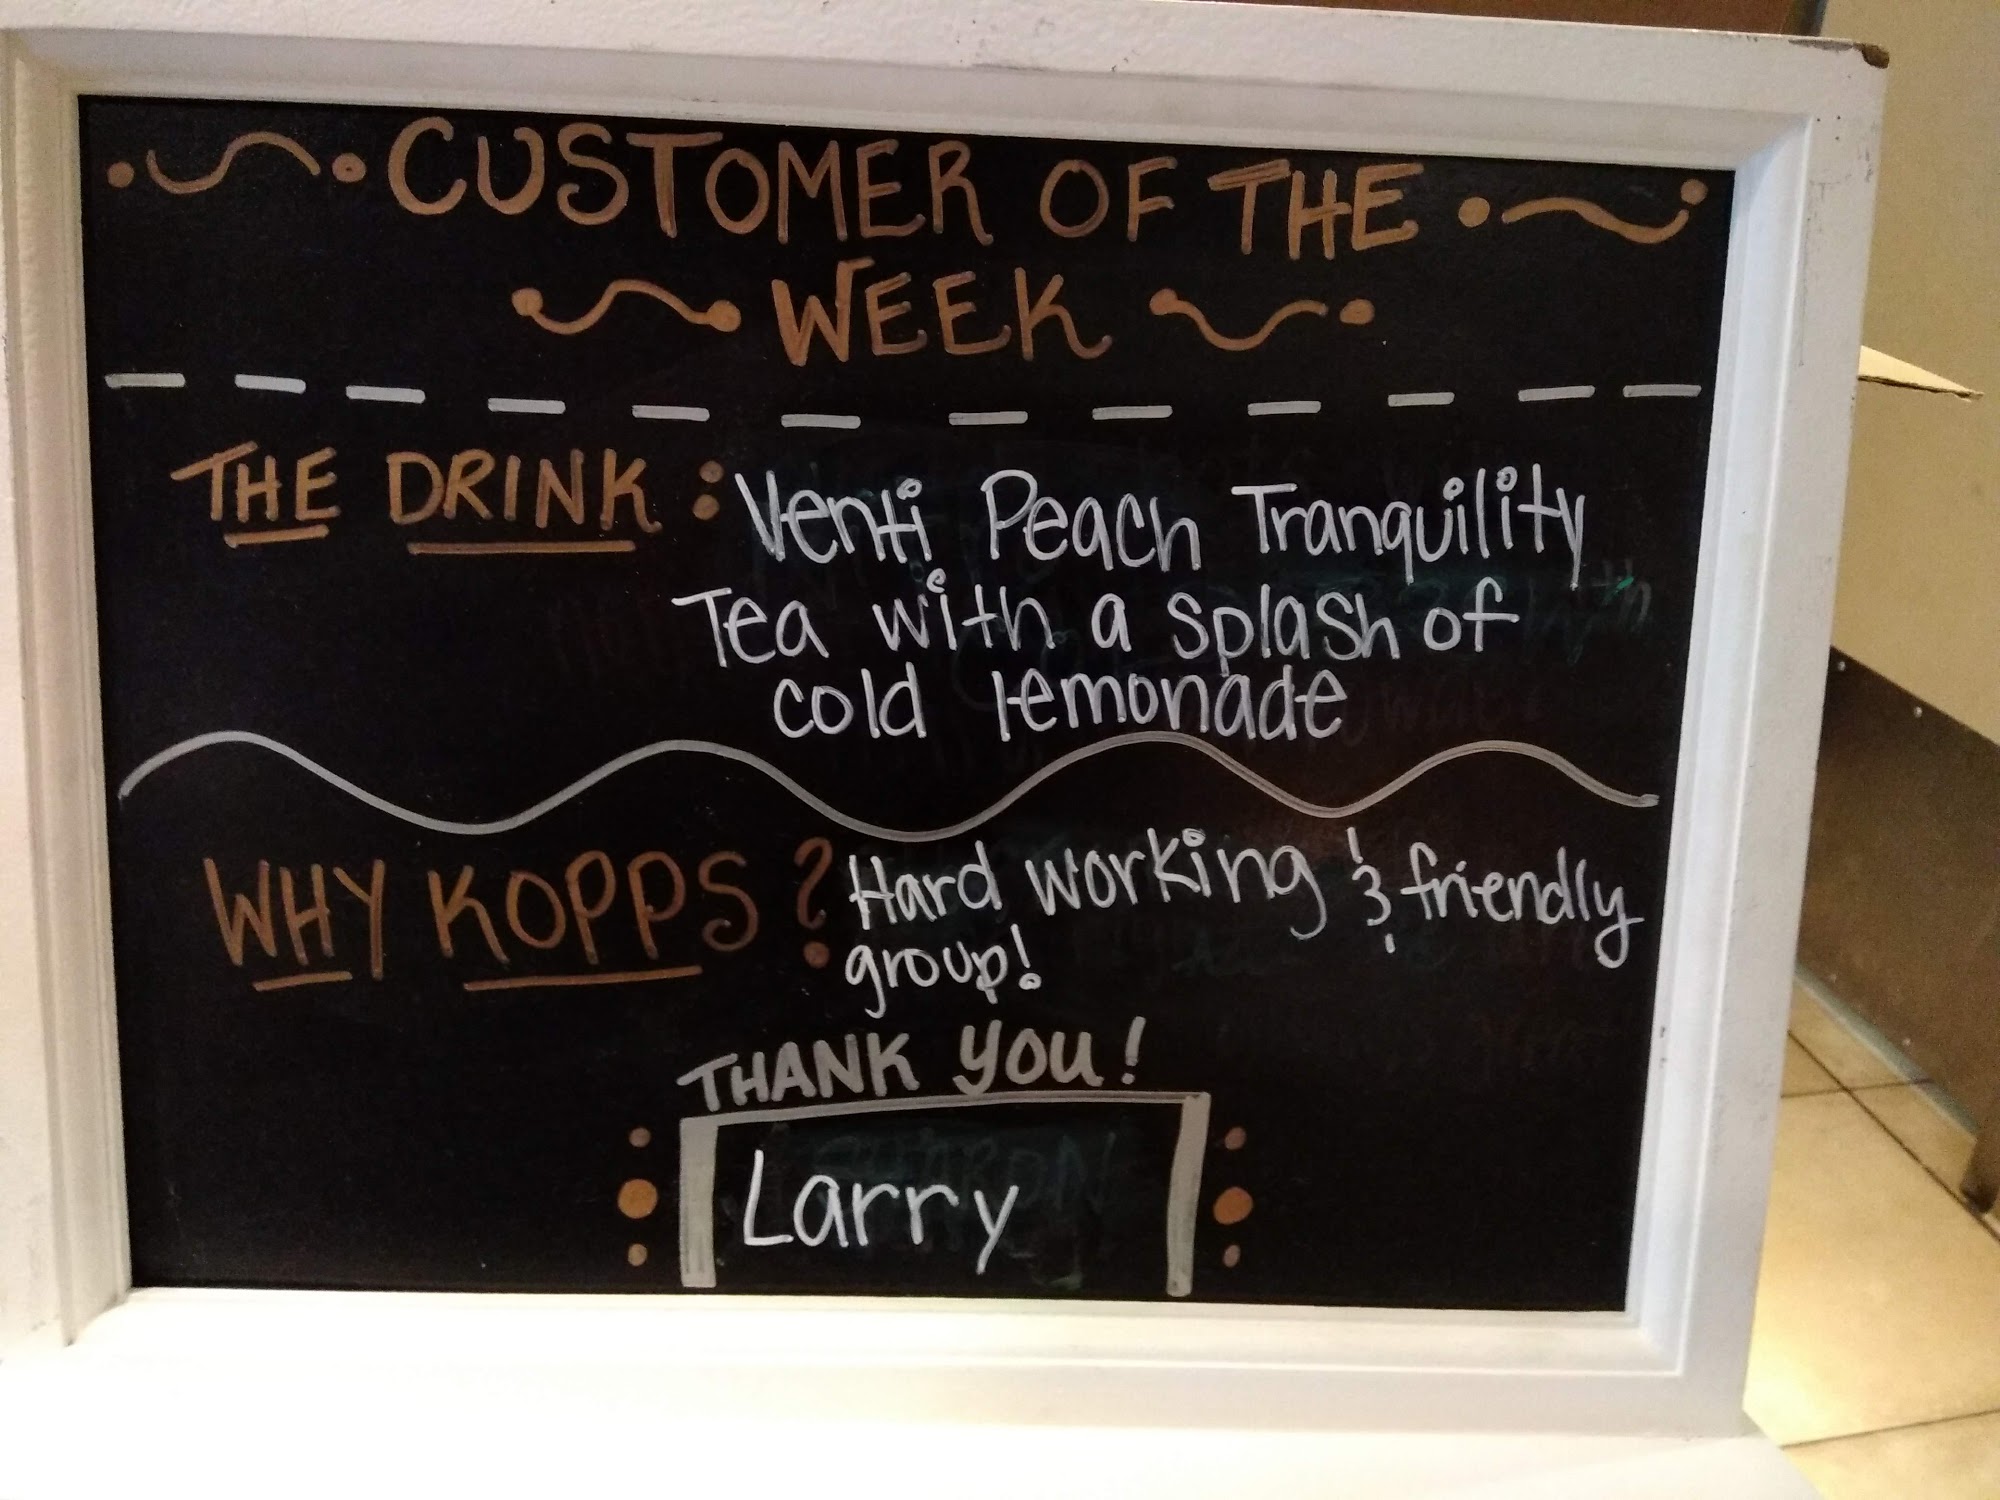 CUSTOMER OF THE
WEEK
THE DRINK: Venti Peach Tranquility
Tea with a splash of
cold lemonade
WHY KOPPS? Hard working & friendly
group!
THANK YOU!
Larry